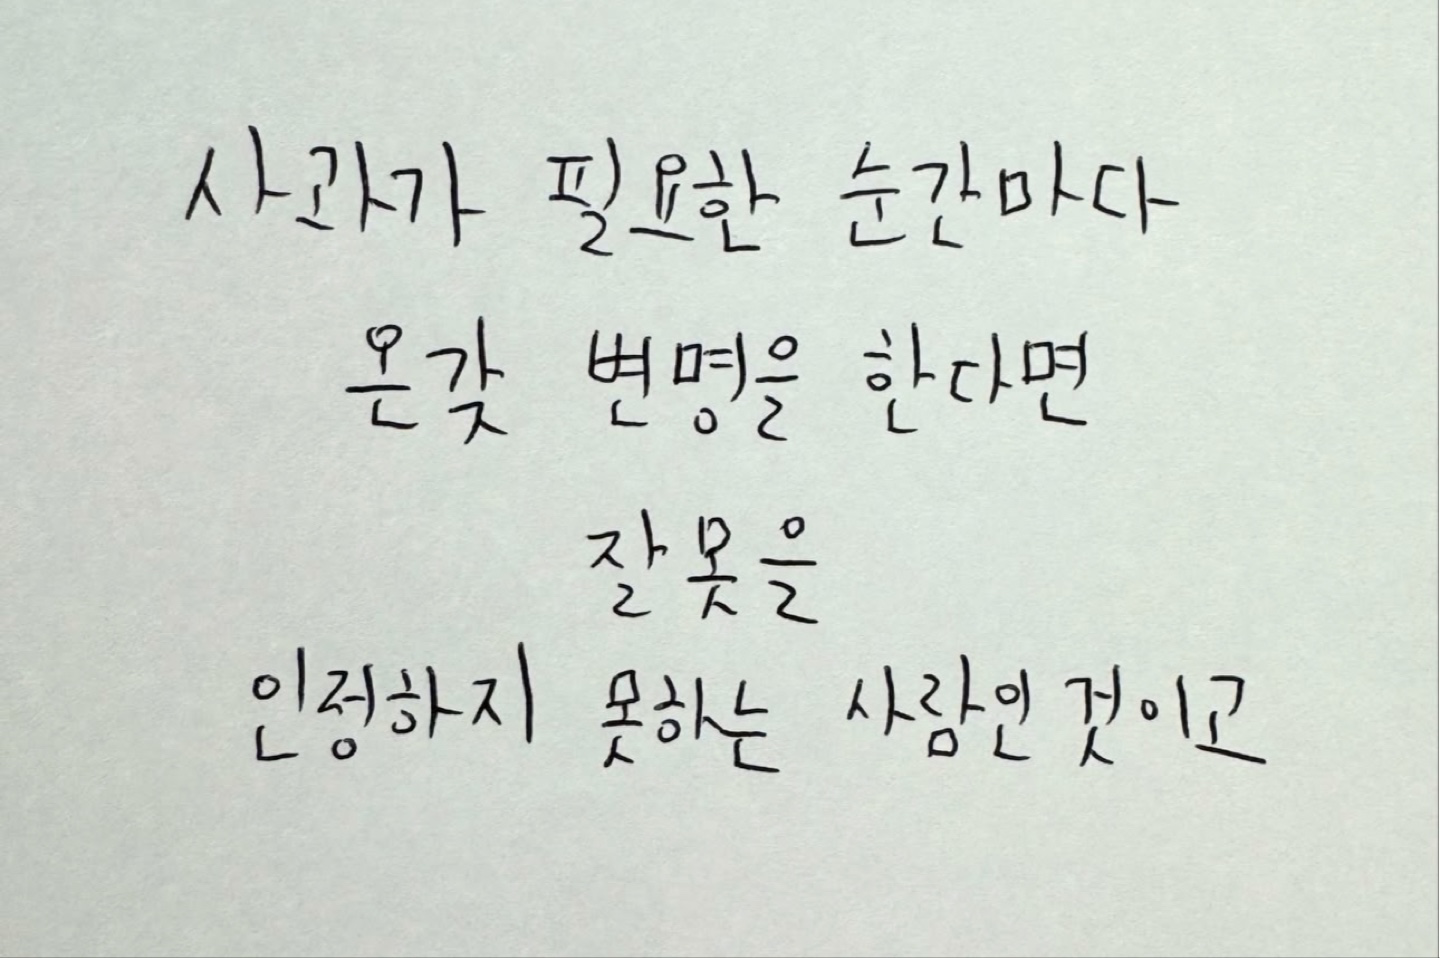 사과가 필요한 순간마다
온갖 변명을 한다면
잘못을
인정하지 못하는 사람인 것이고